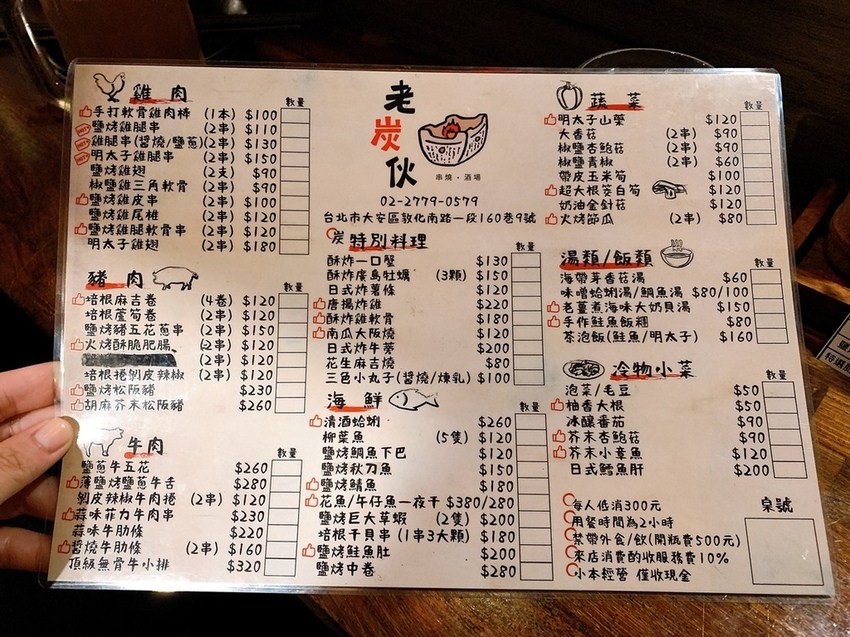 雞肉
數量
手打軟骨雞肉棒 (1本) $100
鹽烤雞腿串 (2串) $110
雞腿串(醬燒/鹽蔥)(2串) $130
明太子雞腿串 (2串) $150
鹽烤雞翅 (2支) $90
椒鹽雞三角軟骨 $90
鹽烤雞皮串 (2串) $100
鹽烤雞尾椎 (2串) $120
鹽烤雞腿軟骨串 (2串) $120
明太子雞翅 (2串) $180
豬肉
數量
培根麻吉卷 (4卷) $120
培根蘆筍卷 (2串) $120
鹽烤豬五花蔥串 (2串) $150
火烤酥脆肥腸 (2串) $120
(2串) $120
培根捲剝皮辣椒 (2串) $120
鹽烤松阪豬 $230
胡麻芥末松阪豬 $260
牛肉
數量
鹽蔥牛五花 $260
薄鹽燒鹽蔥牛舌 $280
剝皮辣椒牛肉捲 (2串) $120
蒜味菲力牛肉串 $230
蒜味牛肋條 $220
醬燒牛肋條 (2串) $160
頂級無骨牛小排 $320
老炭伙
串燒・酒場
02-2779-0579
台北市大安區敦化南路一段160巷9號
炭特別料理
數量
酥炸一口蟹 $130
酥炸廣島牡蠣 (3顆) $150
日式炸薯條 $120
唐揚炸雞 $220
酥炸雞軟骨 $180
南瓜大阪燒 $120
日式炸牛蒡 $200
花生麻吉燒 $80
三色小丸子(醬燒/煉乳) $100
海鮮
數量
清酒蛤蜊 $260
柳葉魚 (5隻) $120
鹽烤鯛魚下巴 $120
鹽烤秋刀魚 $150
鹽烤鯖魚 $180
花魚/午仔魚一夜干 $380/280
鹽烤巨大草蝦 (2隻) $200
培根干貝串 (1串3大顆) $180
鹽烤鮭魚肚 $200
鹽烤中卷 $280
蔬菜
數量
明太子山藥 $120
大香菇 (2串) $90
椒鹽杏鮑菇 (2串) $90
椒鹽青椒 (2串) $60
帶皮玉米筍 $100
超大根筊白筍 $120
奶油金針菇 $120
火烤節瓜 (2串) $80
湯類/飯類
數量
海帶芽香菇湯 $60
味噌蛤蜊湯/鯛魚湯 $80/100
老薑煮海味大奶貝湯 $150
手作鮭魚飯糰 $80
茶泡飯(鮭魚/明太子) $160
冷物小菜
數量
泡菜/毛豆 $50
柚香大根 $50
冰釀番茄 $90
芥末杏鮑菇 $90
芥末小章魚 $120
日式鱈魚肝 $200
每人低消300元
用餐時間為2小時
禁帶外食/飲(開瓶費500元)
來店消費酌收服務費10%
小本經營 僅收現金
桌號